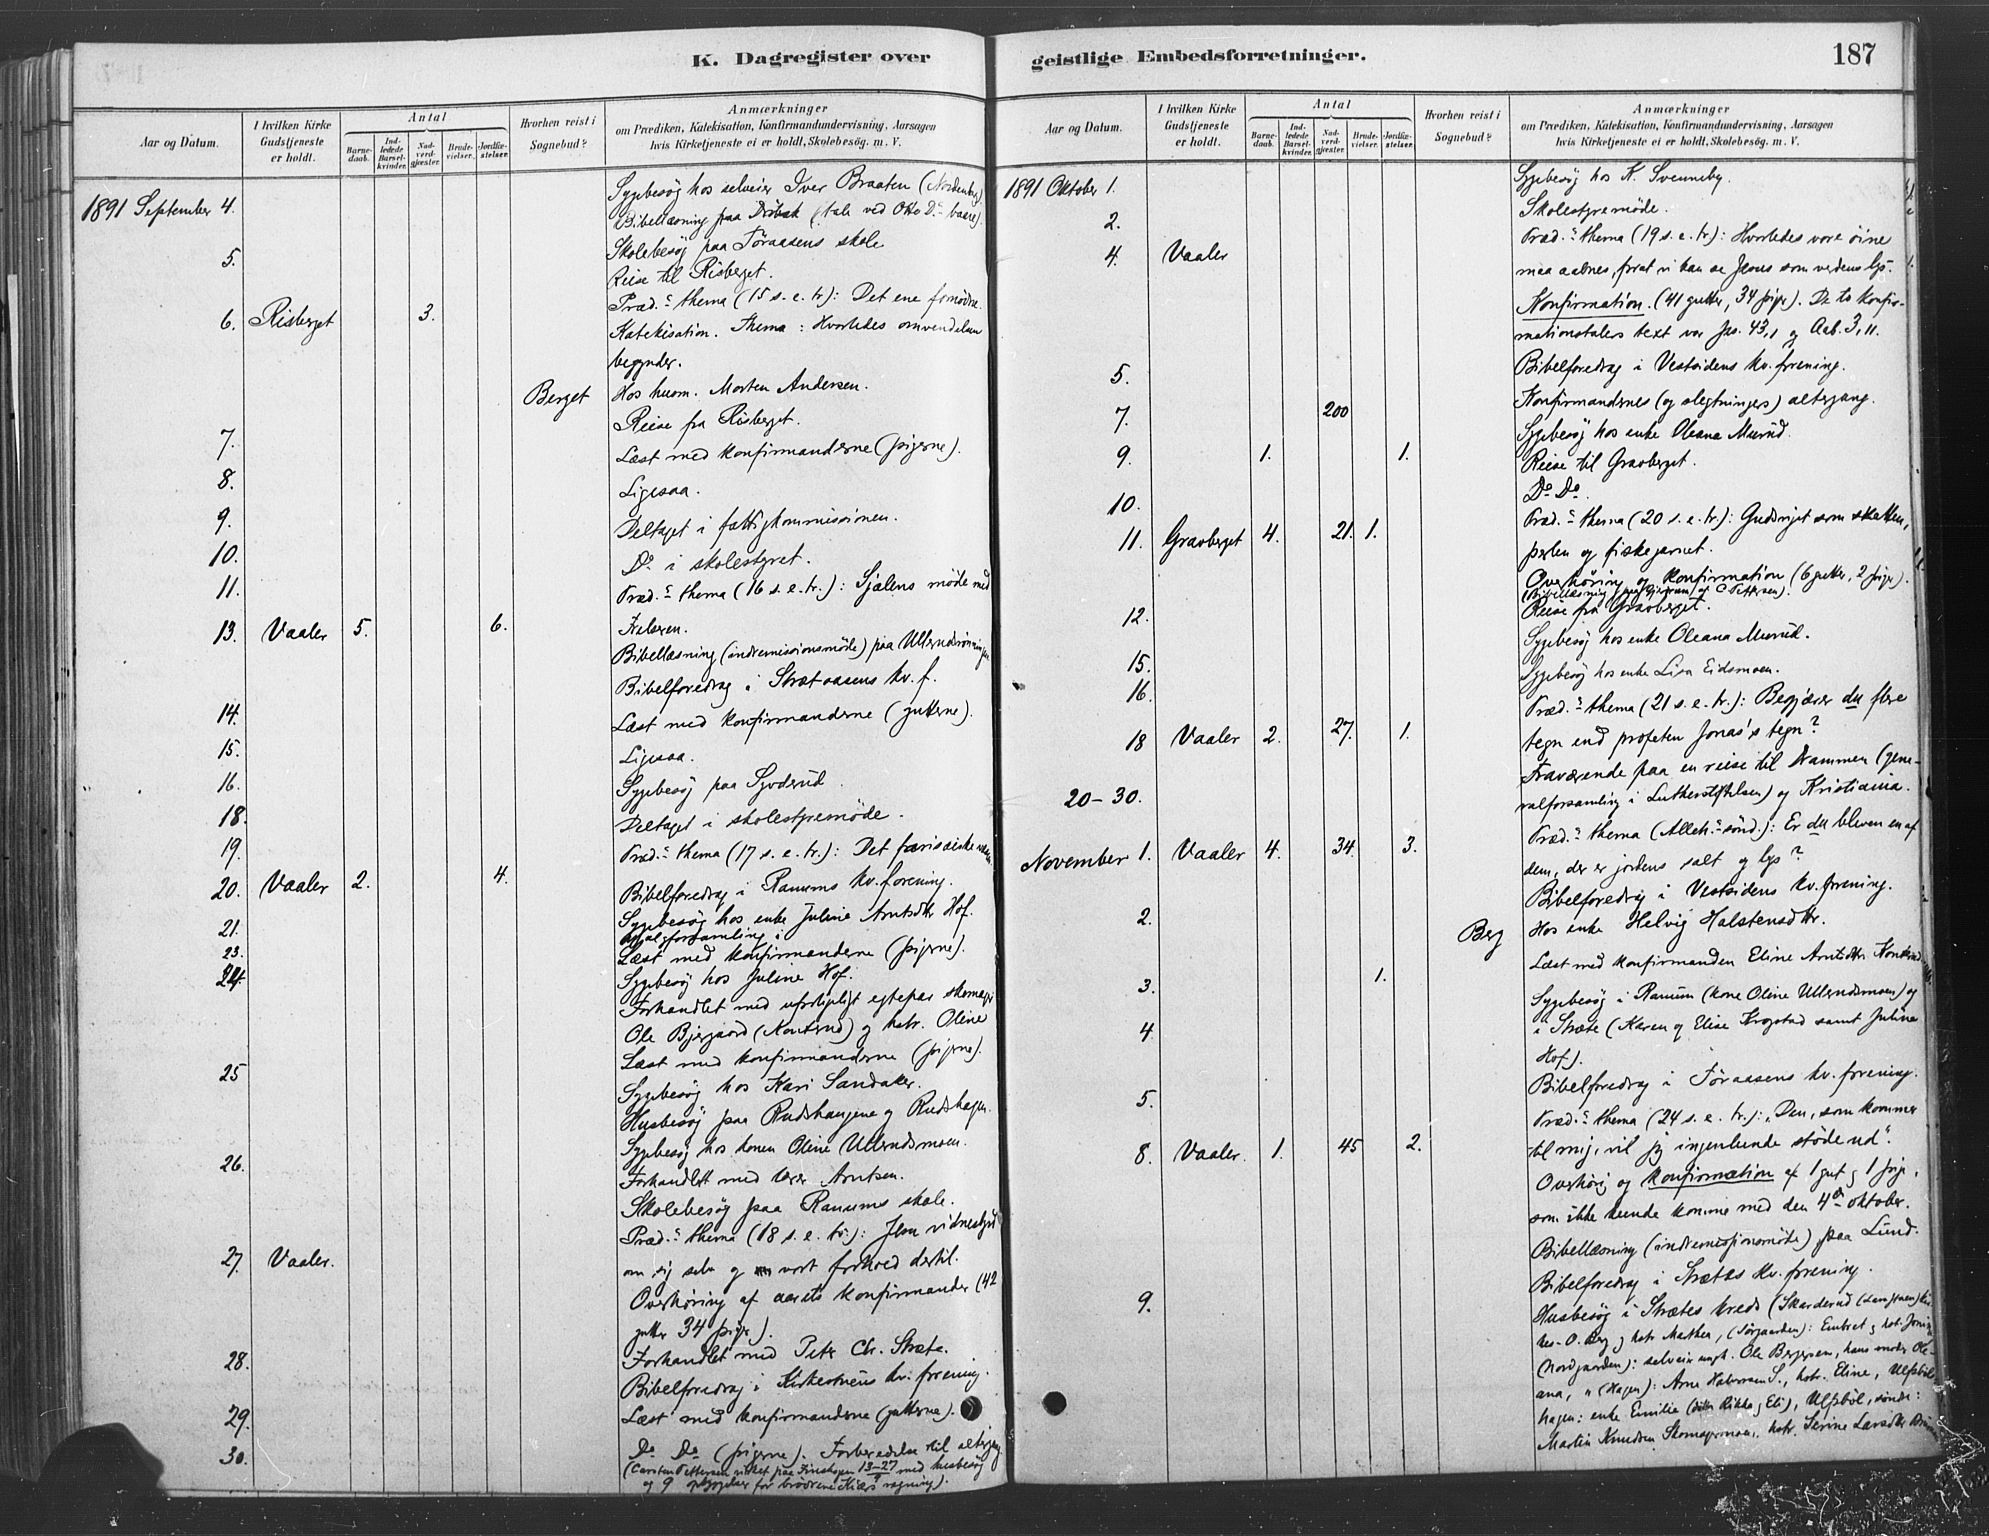 K. Dagregister over
Aar og Datum.
I hvilken Kirke Gudstjeneste er holdt.
Antal
Barnedaab.
Indledede Barselkvinder.
Nadverdgjester.
Brudevielser.
Jordfæstelser.
Hvorhen reist i Sognebud?
Anmærkninger
om Prædiken, Katekisation, Konfirmandundervisning, Aarsagen
hvis Kirketjeneste ei er holdt, Skolebesøg. m. V.
1891 September 4. Sygebesøg hos selveier Iver Braaten
Bibellæsning paa
5. Skolebesøg paa Føraasens skole
Reise til Risberget.
6. Risberget 3. Præd.s thema (15 s. e. tr.): Det ene fornødne.
Katekisation. Thema: Hvorledes omvendelsen
begynder.
Berget Hos huom. Morten Andersen.
7. Reise fra Risberget.
Læst med konfirmanderne (pigerne).
8. Ligesaa.
9. Deltaget i fattigkommissionen.
10. Do i skolestyret.
11. Præd.s thema (16 s. e. tr.): Sjælens møde med
13. Vaaler 5. 6. Frelseren.
Bibellæsning (indremissionsmøde) paa
Bibelforedrag i Strætaasens kv. f.
14. Læst med konfirmanderne (gutterne).
15. Ligesaa.
16. Sygebesøg paa
18. Deltaget i skolestyremøde.
19. Præd.s thema (17 s. e. tr.): Det farisæiske
20. Vaaler 2. 4. Bibelforedrag i Ranums kv. forening.
21. Sygebesøg hos enke Juline Arntsdtr Hof.
23. Læst med konfirmanderne (pigerne).
24. Sygebesøg hos Juline Hof.
Forhandlet med uforligeligt egtepar skomager
Ole Bjergaard (Konterud) og hstr. Oline
25 Læst med konfirmanderne (pigerne).
Sygebesøg hos Kari Sandaker.
Husbesøg paa Rudshaugene og Rudshagen.
26. Sygebesøg hos konen Oline Ullerudsmoen.
Forhandlet med lærer Arntsen.
Skolebesøg paa Ranums skole.
27. Vaaler. Præd.s thema (18 s. e. tr.): Jesu vidnesbyrd
om sig selv og vort forhold dertil.
Overhøring af aarets konfirmander (42
gutter 34 piger).
28. Forhandlet med Petr. Chr. Stræte.
Bibelforedrag i kv. forening.
29. Læst med konfirmanderne (gutterne).
30. Do Do (pigerne). Forberedelse til altergang
(Carsten Pettersen virket paa Finskogen 13-27/9 med husbesøg
og 9 opbyggelser for

geistlige Embedsforretninger.
187
Aar og Datum.
I hvilken Kirke Gudstjeneste er holdt.
Antal
Barnedaab.
Indledede Barselkvinder.
Nadverdgjester.
Brudevielser.
Jordfæstelser.
Hvorhen reist i Sognebud?
Anmærkninger
om Prædiken, Katekisation, Konfirmandundervisning, Aarsagen
hvis Kirketjeneste ei er holdt, Skolebesøg. m. V.
1891 Oktober 1. Sygebesøg hos K. Svenneby.
2. Skolestyremøde.
4. Vaaler Præd.s thema (19 s. e. tr.): Hvorledes vore øine
maa aabnes, forat vi kan se Jesus som verdens lys.
Konfirmation. (41 gutter, 34 piger). De to konfir-
mationstalers text var Jes. 43,1 og Aab. 3,11.
5. Bibelforedrag i Vestsidens kv. forening.
7. 200 Konfirmandernes (og slegtningers) altergang.
9. 1. 1. Sygebesøg hos enke Oleana Murud.
Reise til Gravberget.
10. Do Do.
11. Gravberget 4. 21. 1. Præd.s thema (20 s. e. tr.): Gudsriget som skatten,
perlen og fiskegarnet.
Overhøring og konfirmation (6 gutter, 2 piger).
12. Reise fra Gravberget.
15. Sygebesøg hos enke Oleana Murud.
16. Sygebesøg hos enke Lisa Eidsmoen.
18 Vaaler 2. 27. 1. Præd.s thema (21 s. e. tr.): Begjærer du flere
tegn end profeten Jonas's tegn?
20-30. Fraværende paa en reise til Drammen (gene-
ralforsamling i Lutherstiftelsen) og Kristiania.
November 1. Vaaler 4. 34. 3. Præd.s thema (Alleh.s sønd.): Er du bleven en af
dem, der er jordens salt og lys?
2. Bibelforedrag i Vestsidens kv. forening.
Berg Hos enke Helvig Halstensdtr.
3. 1. Læst med konfirmanden Eline Arntsdtr
4. Sygebesøg i Ranum (kone Oline Ullerudsmoen) og
i Stræte (Karen og Elise Krogstad samt Juline
Hof).
5. Bibelforedrag i Føraasens kv. forening.
8. Vaaler. 1. 45 2. Præd.s thema (24 s. e. tr.): „Den, som kommer
til mig, vil jeg ingenlunde støde ud“.
Overhøring og konfirmation af 1 gut og 1 pige,
som ikke kunde komme med den 4de oktober.
Bibellæsning (indremissionsmøde) paa Lund.
9. Bibelforedrag i Strætes kv. forening.
Husbesøg i Strætes kreds (Skarderud
O. Berg og hstr Marthea, (Sørgaarden): Embret og hst.
(Nordgaarden): selveier ungk. Ole Bergersen, hans moder Ole-
ana, " (Hagen): Arne Halvorsen S., hstr. Eline, Ulfsbøl
hagen: enke Emilie Ulfsbøl, søndre:
Martin Knudsen Skomagermoen, hstr. Serine Larsdtr